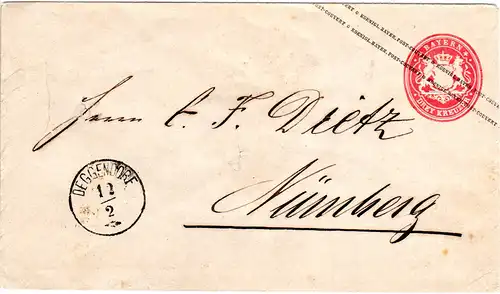 KOENIGL. BAYER. POST-COUVERT
BAYERN
DREI KREUZER
Herrn C. F. Dietz
Nürnberg
DEGGENDORF
12
2